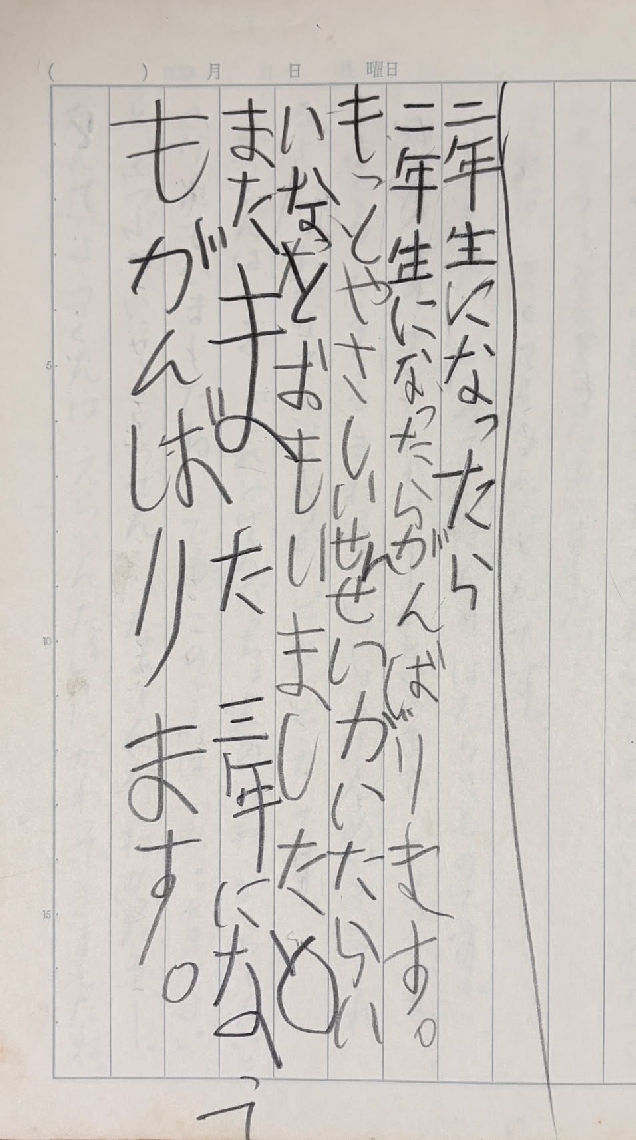 ( ) 月 日 曜日
二年生になったら
二年生になったらがんばります。
もっとやさしいせんせいがいたらい
いなとおもいましたと
またまた 三年になって
もがんばります。
5
10
15